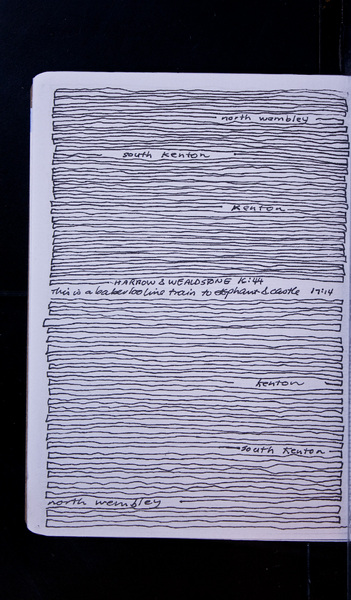 north wembley
south Kenton
Kenton
HARROW & WEALDSTONE 16:44
This is a bakerloo line train to elephant & castle 17:14
kenton
south kenton
north wembley